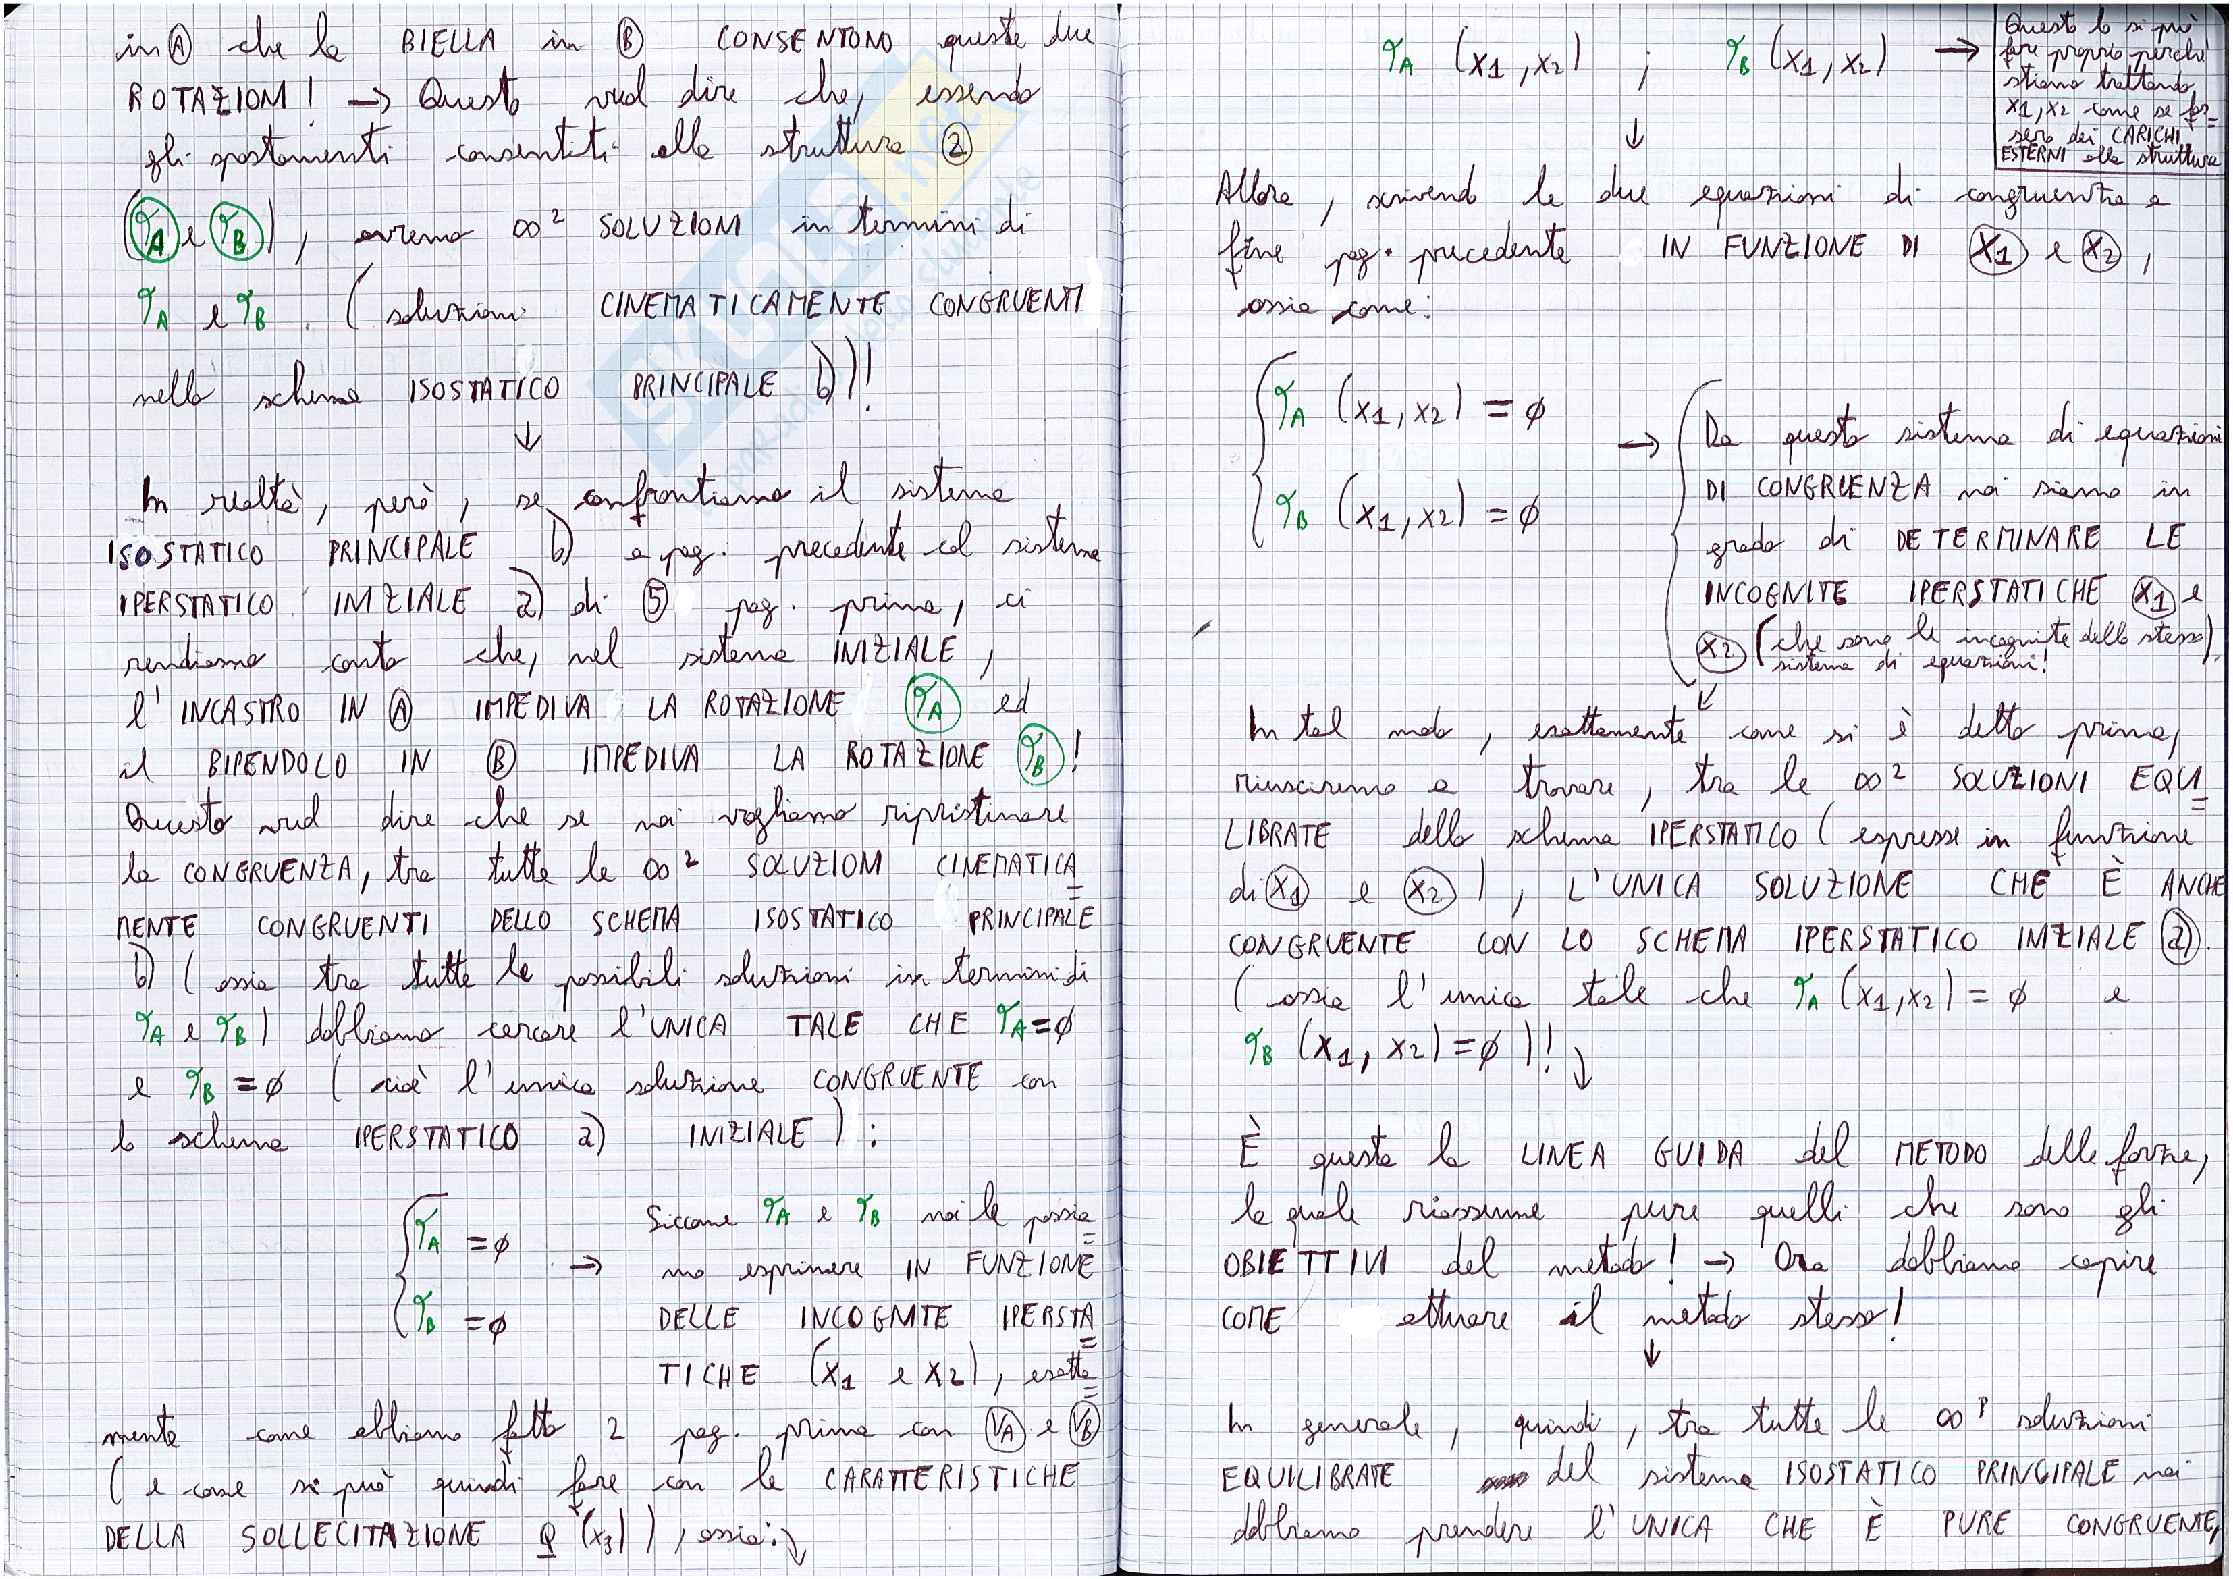 in Ⓐ che la BIELLA in Ⓑ CONSENTONO queste due
ROTAZIONI! → Questo vuol dire che, essendo
gli spostamenti consentiti alla struttura ②
(φA e φB), avremo ∞² SOLUZIONI in termini di
φA e φB. (soluzioni CINEMATICAMENTE CONGRUENTI
nello schema ISOSTATICO PRINCIPALE b))!
↓
In realtà, però, se confrontiamo il sistema
ISOSTATICO PRINCIPALE b) a pag. precedente col sistema
IPERSTATICO INIZIALE a) di ⑤ pag. prima, ci
rendiamo conto che, nel sistema INIZIALE,
l'INCASTRO IN Ⓐ IMPEDIVA LA ROTAZIONE φA ed
il BIPENDOLO IN Ⓑ IMPEDIVA LA ROTAZIONE φB!
Questo vuol dire che se noi vogliamo ripristinare
la CONGRUENZA, tra tutte le ∞² SOLUZIONI CINEMATICA=
MENTE CONGRUENTI DELLO SCHEMA ISOSTATICO PRINCIPALE
b) (ossia tra tutte le possibili soluzioni in termini di
φA e φB) dobbiamo cercare l'UNICA TALE CHE φA=ø
e φB=ø (cioè l'unica soluzione CONGRUENTE con
lo schema IPERSTATICO a) INIZIALE):
{ φA = ø
φB = ø
→ Siccome φA e φB noi le possia=
mo esprimere IN FUNZIONE
DELLE INCOGNITE IPERSTA=
TICHE (X1 e X2), esatta=
mente come abbiamo fatto 2 pag. prima con VA e VB
(e come si può quindi fare con le CARATTERISTICHE
DELLA SOLLECITAZIONE Q (x3)), ossia: ↓
φA (X1, X2) ; φB (X1, X2) →
Questo lo si può
fare proprio perché
stiamo trattando
X1, X2 come se fos=
sero dei CARICHI
ESTERNI alla struttura
↓
Allora, scrivendo le due equazioni di congruenza a
fine pag. precedente IN FUNZIONE DI X1 e X2,
ossia come:
{ φA (X1, X2) = ø
φB (X1, X2) = ø
→ ( Da questo sistema di equazioni
DI CONGRUENZA noi siamo in
grado di DETERMINARE LE
INCOGNITE IPERSTATICHE X1 e
X2 (che sono le incognite dello stesso
sistema di equazioni!)
↓
In tal modo, esattamente come si è detto prima,
riusciremo a trovare, tra le ∞² SOLUZIONI EQUI=
LIBRATE dello schema IPERSTATICO (espresse in funzione
di X1 e X2), L'UNICA SOLUZIONE CHE È ANCHE
CONGRUENTE CON LO SCHEMA IPERSTATICO INIZIALE a).
(ossia l'unica tale che φA (X1, X2) = ø e
φB (X1, X2) = ø)! ↓
È questa la LINEA GUIDA del METODO delle forze,
la quale riassume pure quelli che sono gli
OBIETTIVI del metodo! → Ora dobbiamo capire
COME attuare il metodo stesso!
↓
In generale, quindi, tra tutte le ∞ᴾ soluzioni
EQUILIBRATE del sistema ISOSTATICO PRINCIPALE noi
dobbiamo prendere l'UNICA CHE È PURE CONGRUENTE,